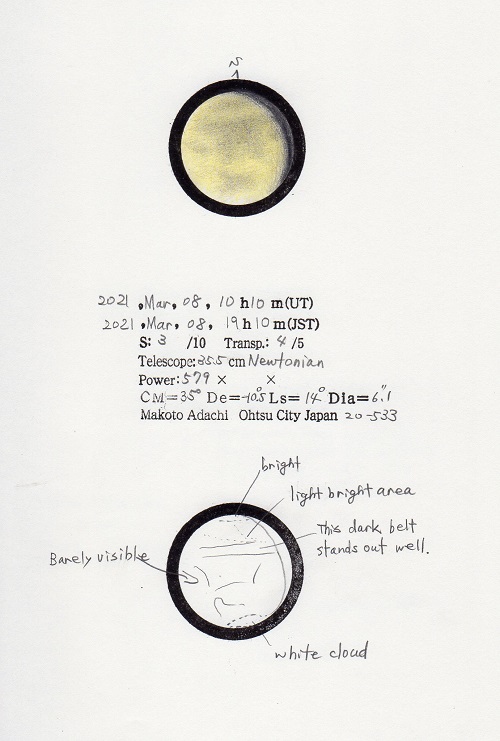 N
2021, Mar, 08, 10 h 10 m (UT)
2021, Mar, 08, 19 h 10 m (JST)
S: 3 /10 Transp.: 4 /5
Telescope: 35.5 cm Newtonian
Power: 579 × ×
CM=35° De=-10.5° Ls=14° Dia=6.″1
Makoto Adachi Ohtsu City Japan 20-533
bright
light bright area
This dark belt
stands out well.
Barely visible
white cloud